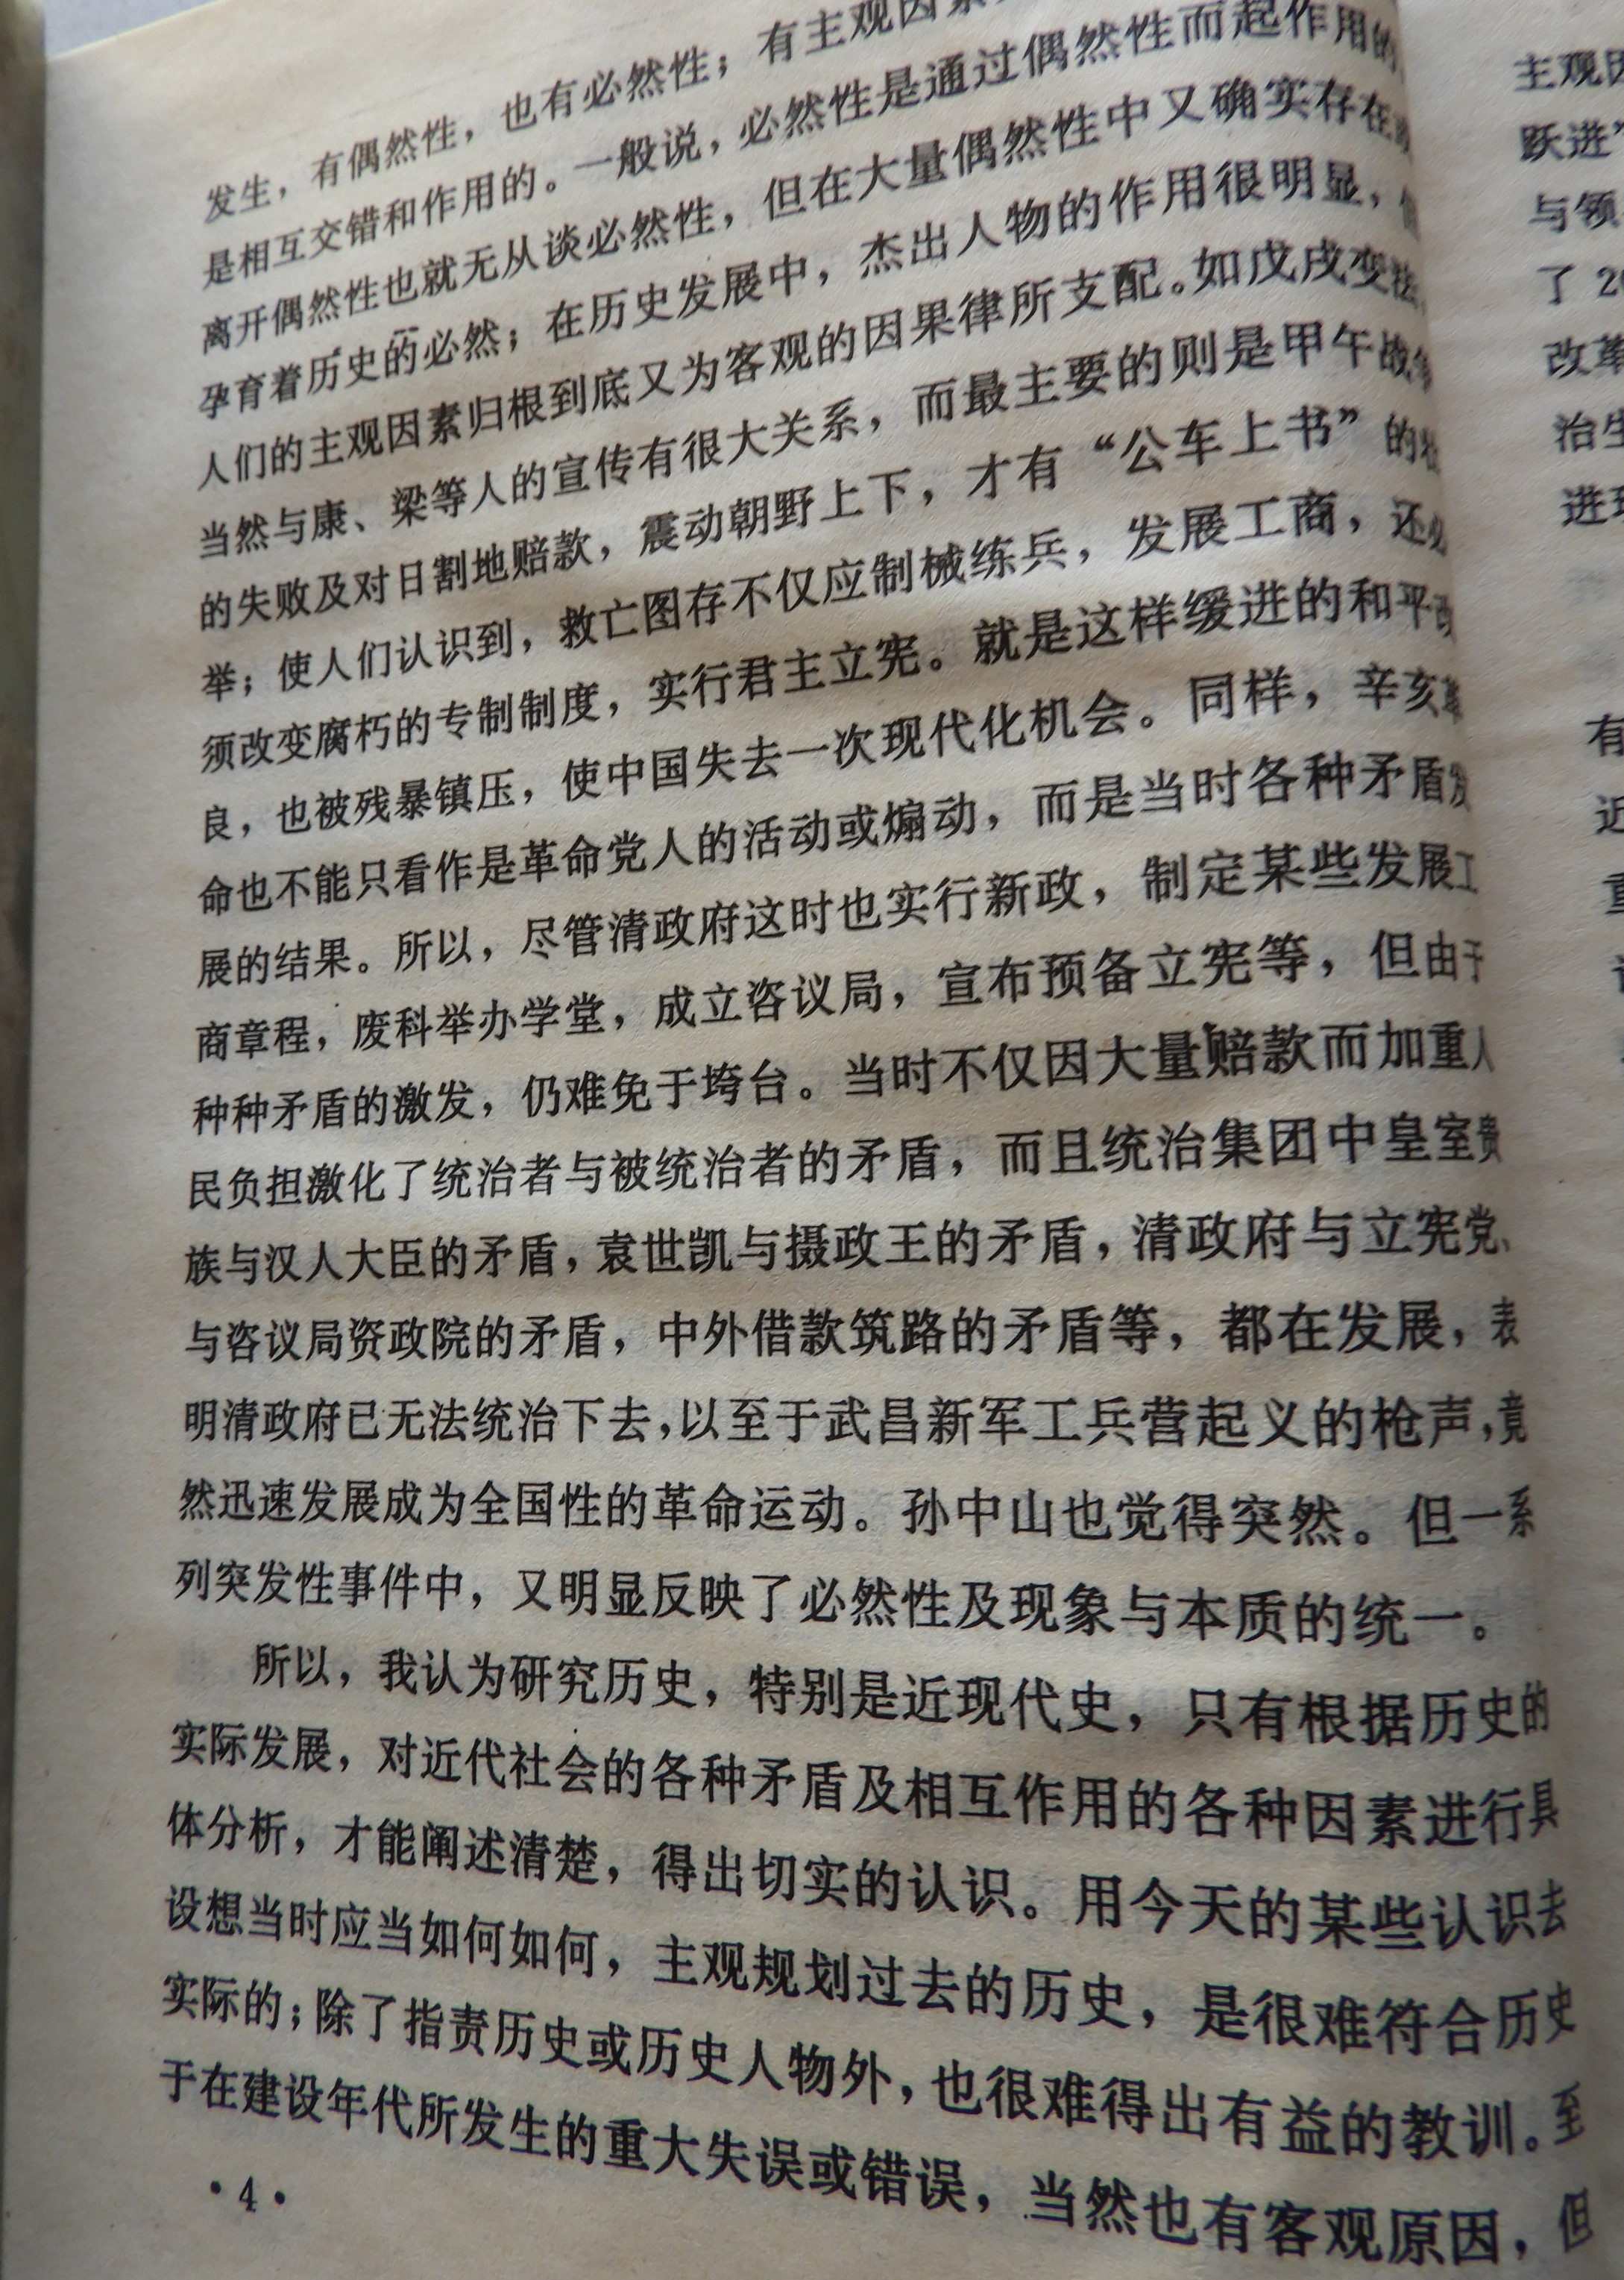 发生，有偶然性，也有必然性；有主观因
是相互交错和作用的。一般说，必然性是通过偶然性而起作用的
离开偶然性也就无从谈必然性，但在大量偶然性中又确实存在
孕育着历史的必然；在历史发展中，杰出人物的作用很明显，
人们的主观因素归根到底又为客观的因果律所支配。如戊戌变法，
当然与康、梁等人的宣传有很大关系，而最主要的则是甲午战争
的失败及对日割地赔款，震动朝野上下，才有“公车上书”的
举；使人们认识到，救亡图存不仅应制械练兵，发展工商，还必
须改变腐朽的专制制度，实行君主立宪。就是这样缓进的和平改
良，也被残暴镇压，使中国失去一次现代化机会。同样，辛亥革
命也不能只看作是革命党人的活动或煽动，而是当时各种矛盾发
展的结果。所以，尽管清政府这时也实行新政，制定某些发展工
商章程，废科举办学堂，成立咨议局，宣布预备立宪等，但由于
种种矛盾的激发，仍难免于垮台。当时不仅因大量赔款而加重人
民负担激化了统治者与被统治者的矛盾，而且统治集团中皇室贵
族与汉人大臣的矛盾，袁世凯与摄政王的矛盾，清政府与立宪党、
与咨议局资政院的矛盾，中外借款筑路的矛盾等，都在发展，表
明清政府已无法统治下去，以至于武昌新军工兵营起义的枪声，竟
然迅速发展成为全国性的革命运动。孙中山也觉得突然。但一系
列突发性事件中，又明显反映了必然性及现象与本质的统一。
所以，我认为研究历史，特别是近现代史，只有根据历史的
实际发展，对近代社会的各种矛盾及相互作用的各种因素进行具
体分析，才能阐述清楚，得出切实的认识。用今天的某些认识去
设想当时应当如何如何，主观规划过去的历史，是很难符合历史
实际的；除了指责历史或历史人物外，也很难得出有益的教训。至
于在建设年代所发生的重大失误或错误，当然也有客观原因，但
·4·
主观因
跃进”
与领
了 2
改革
治生
进
有
近